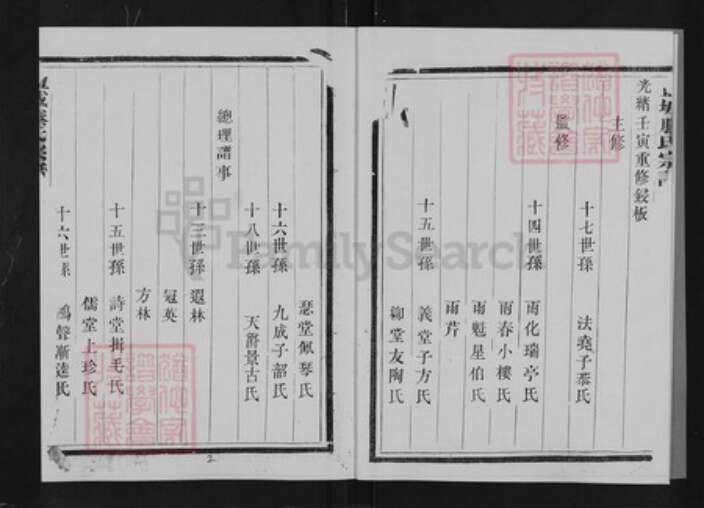 光緒壬寅重修鋟板
主修
十七世孫 法堯子恭氏
監修
十四世孫 雨化瑞亭氏
雨春小樓氏
雨魁星伯氏
雨芹
十五世孫 義堂子方氏
御堂友陶氏
瑟堂佩琴氏
十六世孫 九成子韶氏
十八世孫 天爵景古氏
總理譜事
十三世孫 遐林
冠英
方林
十五世孫 詩堂揖毛氏
儒堂上珍氏
十六世孫 鴻聲漸逵氏
FamilySearch
2